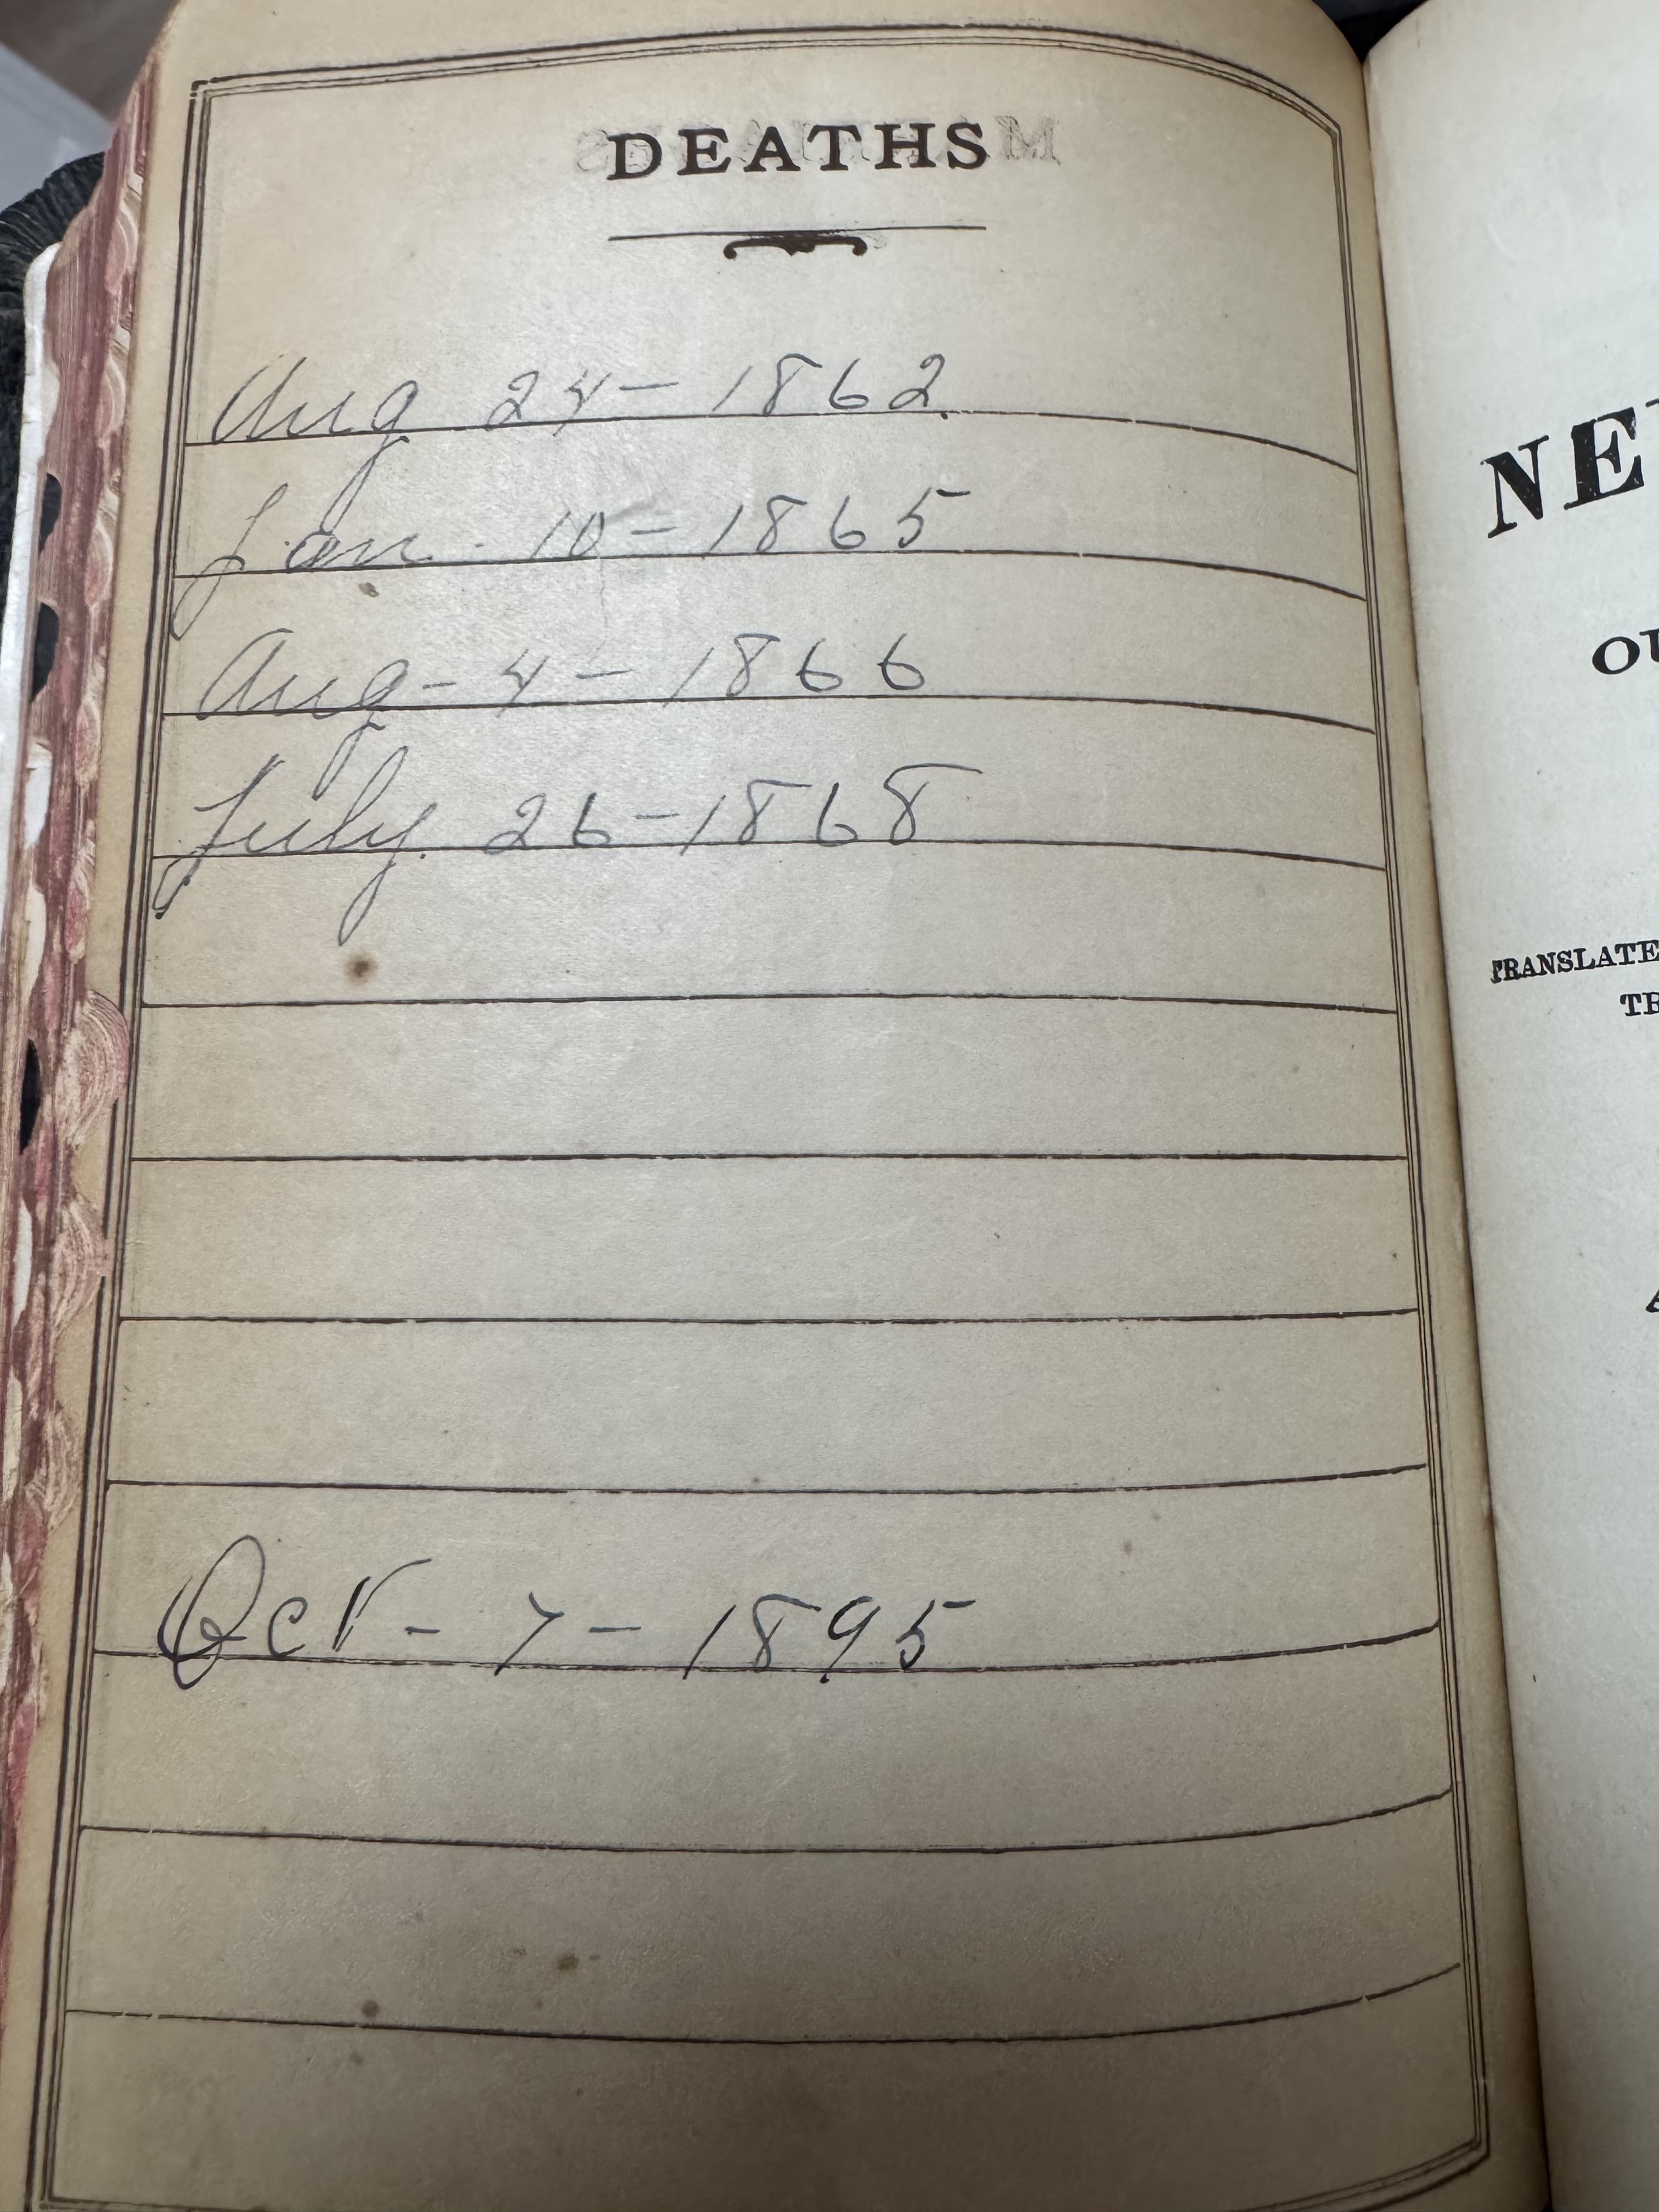 DEATHS
Aug 24 - 1862
Jan. 10 - 1865
Aug - 4 - 1866
July. 26 - 1868
Oct - 7 - 1895
NE
OU
TRANSLATE
TR
A